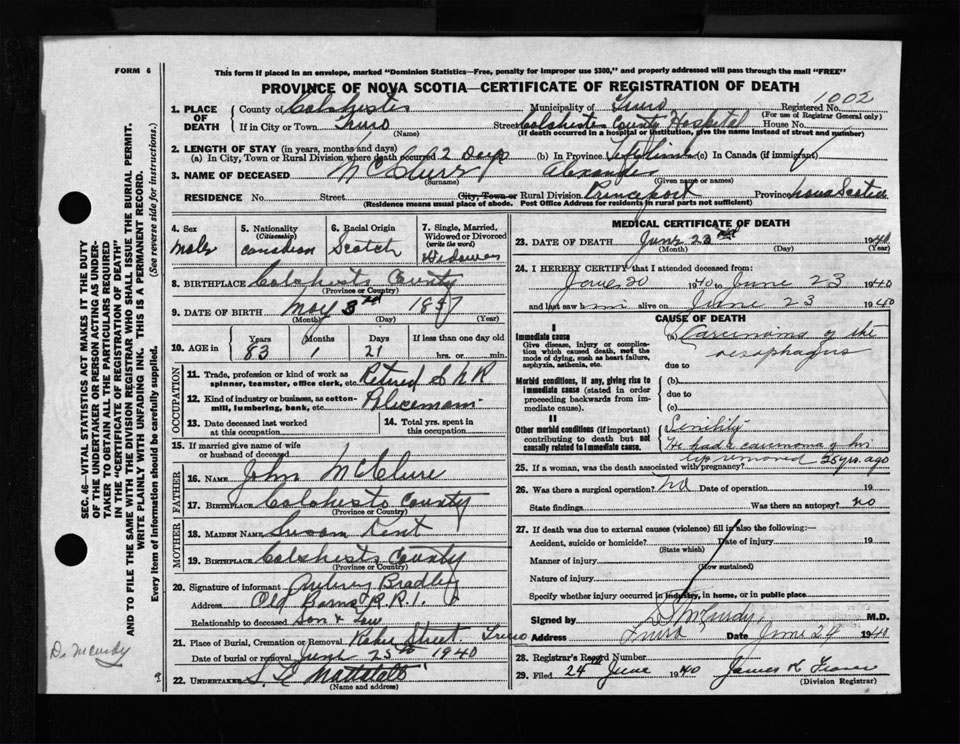 FORM 6
This form if placed in an envelope, marked "Dominion Statistics—Free, penalty for improper use $300," and properly addressed will pass through the mail "FREE"
PROVINCE OF NOVA SCOTIA—CERTIFICATE OF REGISTRATION OF DEATH
1. PLACE OF DEATH County of Colchester Municipality of Truro Registered No. 1002
(For use of Registrar General only)
If in City or Town Truro Street Colchester County Hospital House No.
(Name) (If death occurred in a hospital or institution, give the name instead of street and number)
2. LENGTH OF STAY (in years, months and days)
(a) In City, Town or Rural Division where death occurred 2 Days (b) In Province Lifetime (c) In Canada (if immigrant)
3. NAME OF DECEASED McClure Alexander
(Surname) (Given name or names)
RESIDENCE No. Street City, Town or Rural Division Princeport Province Nova Scotia
(Residence means usual place of abode. Post Office Address for residents in rural parts not sufficient)
4. Sex Male
5. Nationality (Citizenship) Canadian
6. Racial Origin Scotch
7. Single, Married, Widowed or Divorced (write the word) Widower
8. BIRTHPLACE Colchester County
(Province or Country)
9. DATE OF BIRTH May 3rd 1857
(Month) (Day) (Year)
10. AGE in Years Months Days If less than one day old
83 1 21 hrs. or min.
OCCUPATION
11. Trade, profession or kind of work as spinner, teamster, office clerk, etc. Retired C N R
12. Kind of industry or business, as cotton-mill, lumbering, bank, etc. Policeman
13. Date deceased last worked at this occupation
14. Total yrs. spent in this occupation
15. If married give name of wife or husband of deceased
FATHER
16. NAME John McClure
17. BIRTHPLACE Colchester County
(Province or Country)
MOTHER
18. MAIDEN NAME Susan Kent
19. BIRTHPLACE Colchester County
(Province or Country)
20. Signature of informant Aubrey Bradley
Address Old Barns R.R.1.
Relationship to deceased Son + Law
21. Place of Burial, Cremation or Removal Street Truro
Date of burial or removal June 25th 1940
22. UNDERTAKER
(Name and address)
MEDICAL CERTIFICATE OF DEATH
23. DATE OF DEATH June 23rd 1940
(Month) (Day) (Year)
24. I HEREBY CERTIFY that I attended deceased from:
June 20 1940 to June 23 1940
and last saw him alive on June 23 1940
CAUSE OF DEATH
I
Immediate cause (a) Carcinoma of the oesophagus
Give disease, injury or complication which caused death, not the mode of dying, such as heart failure, asphyxia, asthenia, etc.
due to
Morbid conditions, if any, giving rise to immediate cause (stated in order proceeding backwards from immediate cause).
(b)
due to
(c)
II
Other morbid conditions (if important) contributing to death but not causally related to immediate cause.
Senility
He had a carcinoma of his
lip removed 25 yrs. ago
25. If a woman, was the death associated with pregnancy?
26. Was there a surgical operation? no Date of operation 19
State findings Was there an autopsy? no
27. If death was due to external causes (violence) fill in also the following:—
Accident, suicide or homicide? Date of injury 19
(State which)
Manner of injury
(How sustained)
Nature of injury
Specify whether injury occurred in industry, in home, or in public place
Signed by McCurdy M.D.
Address Truro Date June 24 1940
28. Registrar's Record Number
29. Filed 24th June 1940 James
(Division Registrar)
SEC. 46—VITAL STATISTICS ACT MAKES IT THE DUTY
OF THE UNDERTAKER OR PERSON ACTING AS UNDERTAKER
TO OBTAIN ALL THE PARTICULARS REQUIRED
IN THE "CERTIFICATE OF REGISTRATION OF DEATH"
AND TO FILE THE SAME WITH THE DIVISION REGISTRAR WHO SHALL ISSUE THE BURIAL PERMIT.
WRITE PLAINLY WITH UNFADING INK. THIS IS A PERMANENT RECORD.
Every item of information should be carefully supplied. (See reverse side for instructions.)
Dr McCurdy